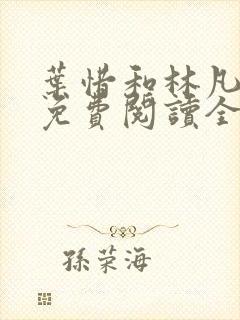 葉惜和林凡
免費閱讀全
孫荣海